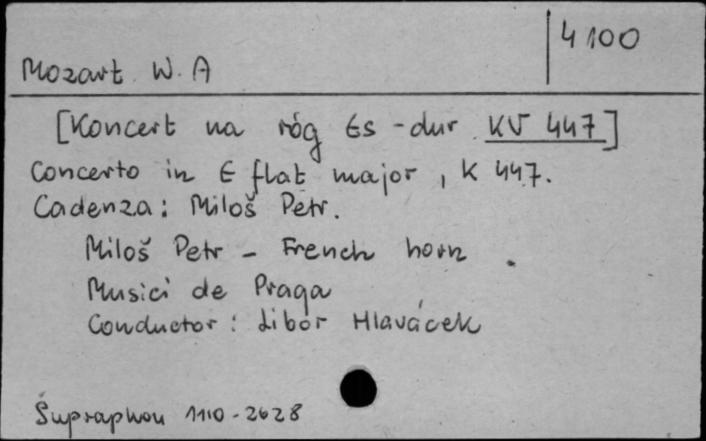 4100
Mozart W. A
[Koncert na róg Es-dur KV 447]
Concerto in E flat major, K 447.
Cadenza: Miloš Petr.
Miloš Petr - French horn.
Musici de Praga
Conductor: Libor Hlaváček
Supraphon 1110-2628